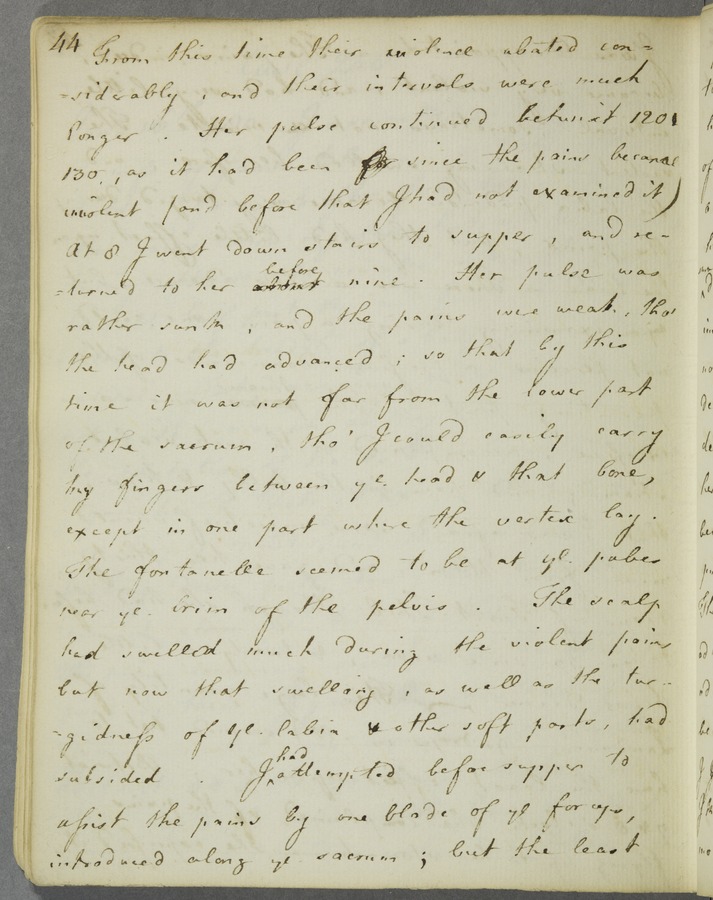 44
From this time their violence abated con=
=siderably, and their intervals were much
longer. Her pulse continued betwixt 120 &
130, as it had been since the pains became
violent (and before that I had not examined it)
At 8 I went down stairs to supper, and re-
=turned to her before nine. Her pulse was
rather sunk, and the pains were weak, tho'
the head had advanced; so that by this
time it was not far from the lower part
of the sacrum, tho' I could easily carry
my fingers between ye. head & that bone,
except in one part where the vertex lay.
The fontanelle seemed to be at ye. pubes
near ye. brim of the pelvis. The scalp
had swelled much during the violent pains
but now that swelling, as well as the tur-
=gidness of ye. labia & other soft parts, had
subsided. I had attempted before supper to
assist the pains by one blade of ye forceps,
introduced along ye sacrum; but the least